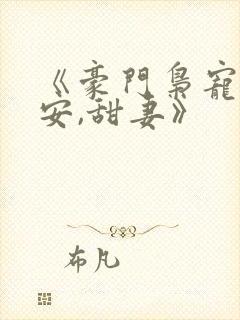 《豪門梟寵
安,甜妻》
布凡